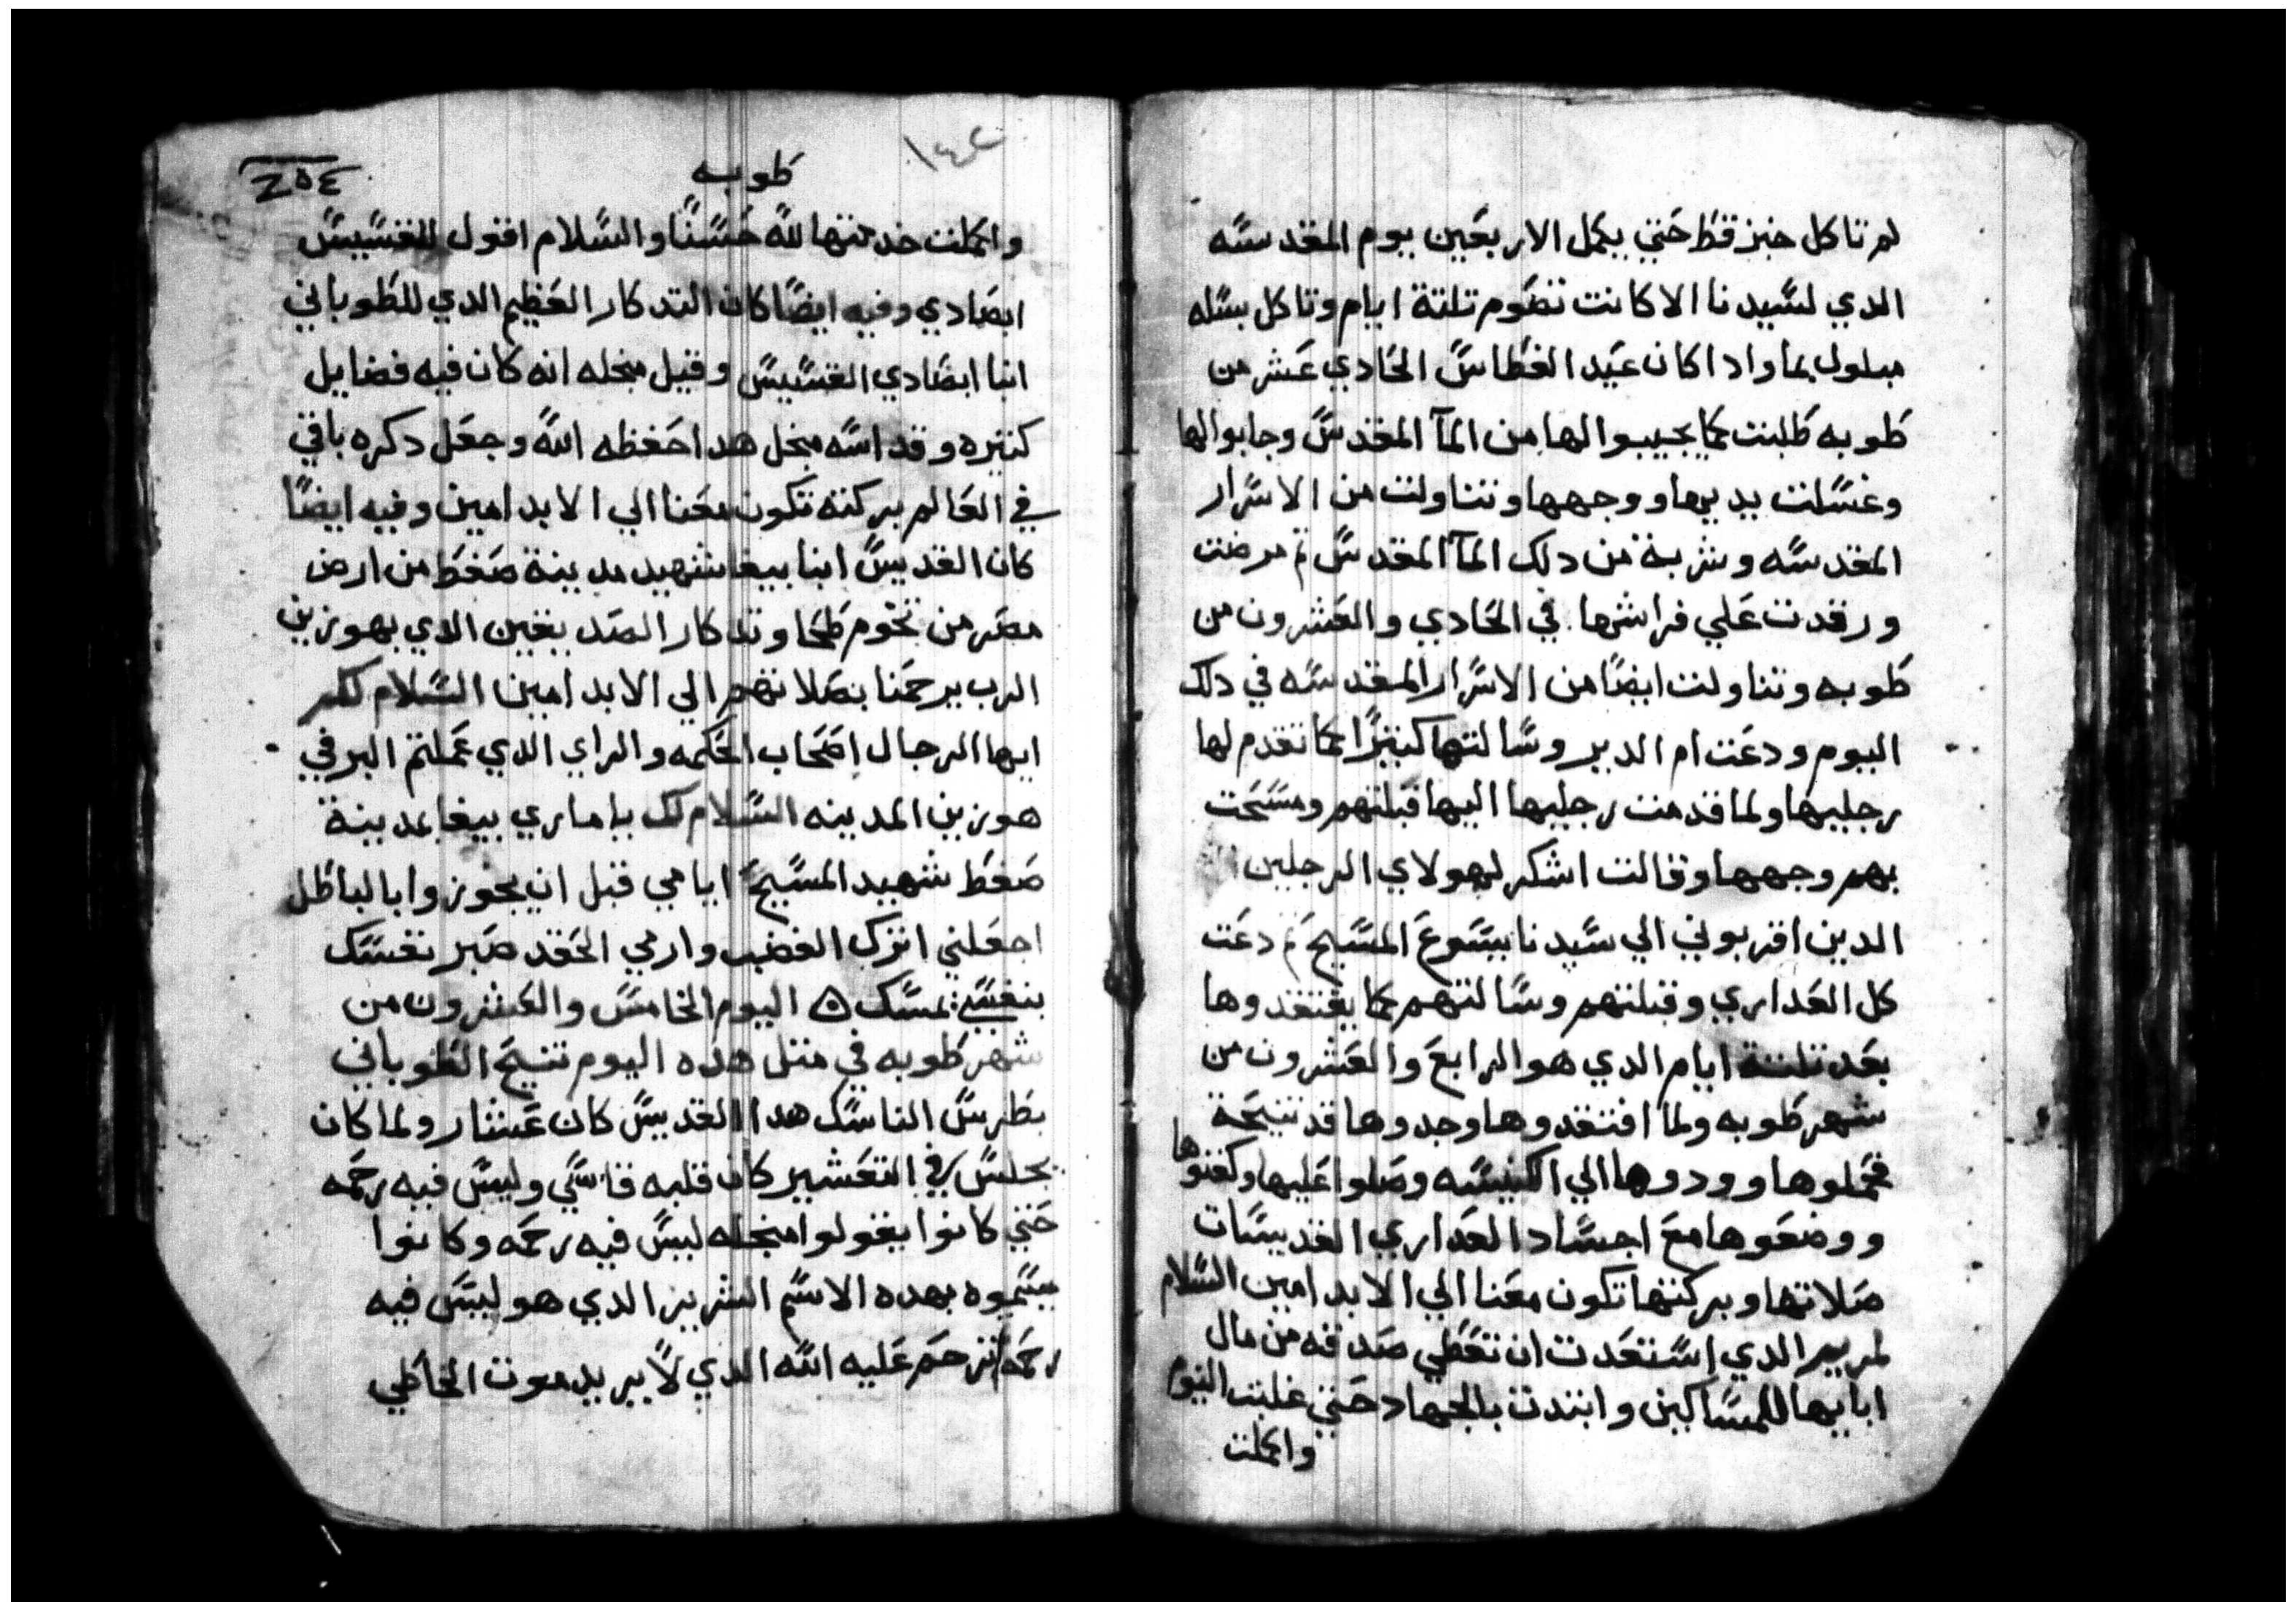 لم تاكل خبز قط حتي يكمل الاربعين يوم المقدسه
الدي لسيدنا الا كانت تصوم تلتة ايام وتاكل بسله
مبلول بما وادا كان عيد الغطاس الحادي عشر من
طوبه طلبت كما يجيبوا لها من المآ المقدس وجابوا لها
وغسلت يديها ووجهها وتناولت من الاسرار
المقدسه وشربة من دلك المآ المقدس تم مرضت
ورقدت علي فراشها في الحادي والعشرون من
طوبه وتناولت ايضًا من الاسرار المقدسه في دلك
اليوم ودعت ام الدير وسالتها كتيرًا كما تقدم لها
رجليها ولما قدمت رجليها اليها قبلتهم ومسحت
بهم وجهها وقالت اشكر لهولاي الرجلين
الدين اقربوني الي سيدنا يسوع المسيح تم دعت
كل العداري وقبلتهم وسالتهم كما يفتقدوها
بعد تلتة ايام الدي هو الرابع والعشرون من
شهر طوبه ولما افتقدوها وجدوها قد تنيحة
فحملوها وودوها الي الكنيسه وصلوا عليها وكفنوها
ووضعوها مع اجساد العداري القديسات
صلاتها وبركتها تكون معنا الي الابد امين السلام
لمريم الدي استعدت ان تعطي صدقه من مال
ابايها للمساكين وابتدت بالجهاد حتي غلبت النوم
واكملت
١٤٢
طوبه
واكملت خدمتها لله حسنًا والسلام اقول للقسيس
ابصادي وفيه ايضًا كان التدكار العظيم الدي للطوباني
انبا ابصادي القسيس وقيل منجله انه كان فيه فضايل
كتيره وقد اسه منجل هدا احفظه الله وجعل دكره باقي
في العالم بركته تكون معنا الي الابد امين وفيه ايضًا
كان القديس انبا بيفا شهيد مدينة صفط من ارض
مصر من تخوم طحا وتدكار الصديقين الدي بهوزين
الرب يرحمنا بصلاتهم الي الابد امين السلام لكم
ايها الرجال اصحاب الحكمه والراي الدي عملتم البر في
هوزين المدينه السلام لك يا ماري بيفا بمدينة
صفط شهيد المسيح ايامي قبل ان يجوزوا بالباطل
اجعلني اترك الغضب وارمي الحقد صبر نفسك
بنفسي تمسك ۞ اليوم الخامس والعشرون من
شهر طوبه في متل هده اليوم تنيح الطوباني
بطرس الناسك هدا القديس كان عشار ولما كان
يجلس في التعشير كان قلبه قاسي وليس فيه رحمه
حتي كانوا يقولوا منجله ليس فيه رحمه وكانوا
يسموه بهده الاسم الشرير الدي هو ليس فيه
رحمه ترحم عليه الله الدي لا يريد موت الخاطي